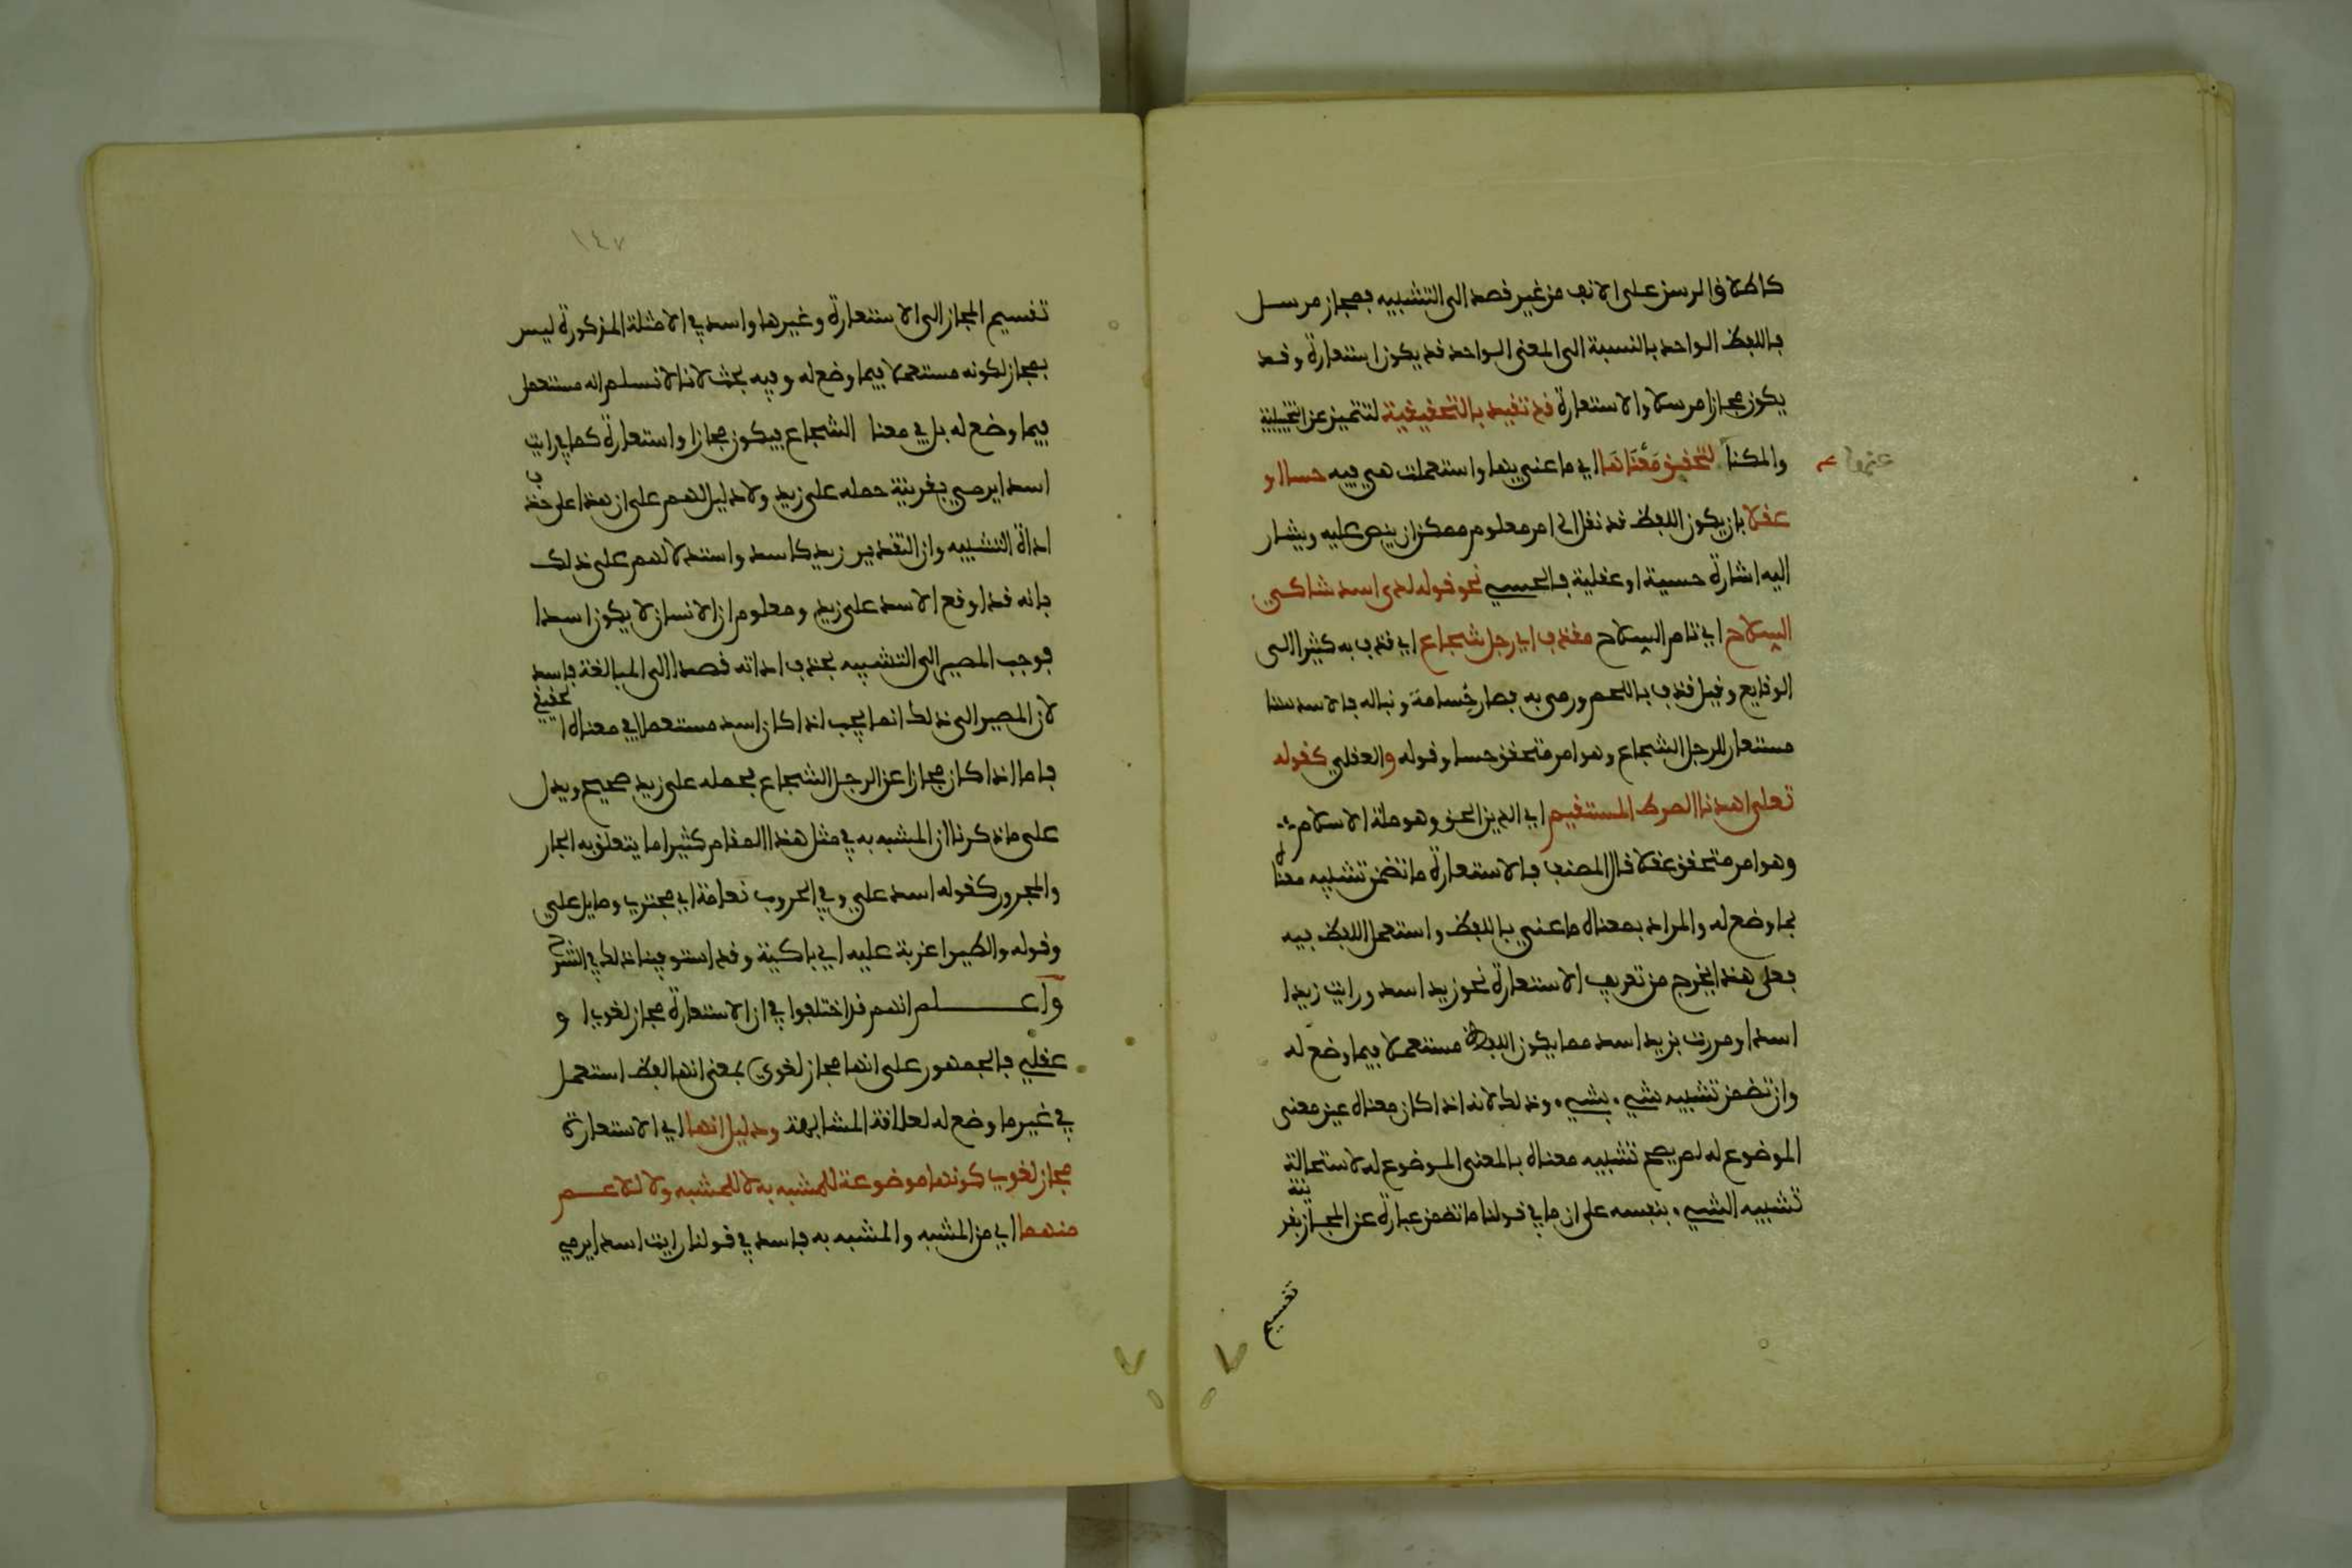 كاطلاق المرسن على الانف من غير قصد الى التشبيه فمجاز مرسل
فاللفظ الواحد بالنسبة الى المعنى الواحد قد يكون استعارة وقد
يكون مجازا مرسلا والاستعارة قد تقيد بالتحقيقية لتتميز عن التخييلية
والمكنا عنها لتحقق معناها اي ما عني بها واستعملت هي فيه حسا او
عقلا بان يكون اللفظ قد نقل الى امر معلوم ممكن ان ينص عليه ويشار
اليه اشارة حسية او عقلية فالحسي نحو قوله لدى اسد شاكي
السلاح اي تام السلاح مقذف اي رجل شجاع اي قذف به كثيرا الى
الوقايع وقيل قذف باللحم ورمي به فصار جسامة ونباله فالاسد هنا
مستعار للرجل الشجاع وهو امر متحقق حسا وقوله والعقلي كقوله
تعلى اهدنا الصرط المستقيم اي الدين الحق وهو ملة الاسلام
وهو امر متحقق عقلا قال المصنف فالاستعارة ما تضمن تشبيه معناه
بما وضع له والمراد بمعناه ما عني باللفظ واستعمل اللفظ فيه
فعلى هذا يخرج من تعريف الاستعارة نحو زيد اسد ورايت زيدا
اسدا ومررت بزيد اسد مما يكون اللفظ مستعملا فيما وضع له
وان تضمن تشبيه شيء بشيء وذلك لانه اذا كان معناه عين معنى
الموضوع له لم يصح تشبيه معناه بالمعنى الموضوع له لاستحالة
تشبيه الشيء بنفسه على ان ما في قولنا ما تضمن عبارة عن المجاز بقرينة
تقسيم
١٤٧
تقسيم المجاز الى الاستعارة وغيرها واسد في الامثلة المذكورة ليس
بمجاز لكونه مستعملا فيما وضع له وفيه بحث لانا لا نسلم انه مستعمل
فيما وضع له بل في معنا الشجاع فيكون مجازا واستعارة كما في رايت
اسدا يرمي بقرينة حمله على زيد ولا دليل لهم على ان هذا على حذف
اداة التشبيه وان التقدير زيد كاسد واستدلالهم على ذلك
بانه قد اوقع الاسد على زيد ومعلوم ان الانسان لا يكون اسدا
فوجب المصير الى التشبيه بحذف اداته قصدا الى المبالغة فاسد
لان المصير الى ذلك انما يجب اذا كان اسد مستعملا في معناه الحقيقي
فاما اذا كان مجازا عن الرجل الشجاع فحمله على زيد صحيح ويدل
على ما ذكرنا ان المشبه به في مثل هذا المقام كثيرا ما يتعلق به الجار
والمجرور كقوله اسد علي وفي الحروب نعامة اي مجترئ وصايل علي
وقوله والطير اغربة عليه اي باكية وقد استوفينا ذلك في الشرح
واعلم انهم قد اختلفوا في ان الاستعارة مجاز لغوي او
عقلي فالجمهور على انها مجاز لغوي بمعنى انها لفظ استعمل
في غير ما وضع له لعلاقة المشابهة ودليل انها اي الاستعارة
مجاز لغوي كونها موضوعة للمشبه به لا للمشبه ولا للاعم
منهما اي من المشبه والمشبه به فاسد في قولنا رايت اسدا يرمي